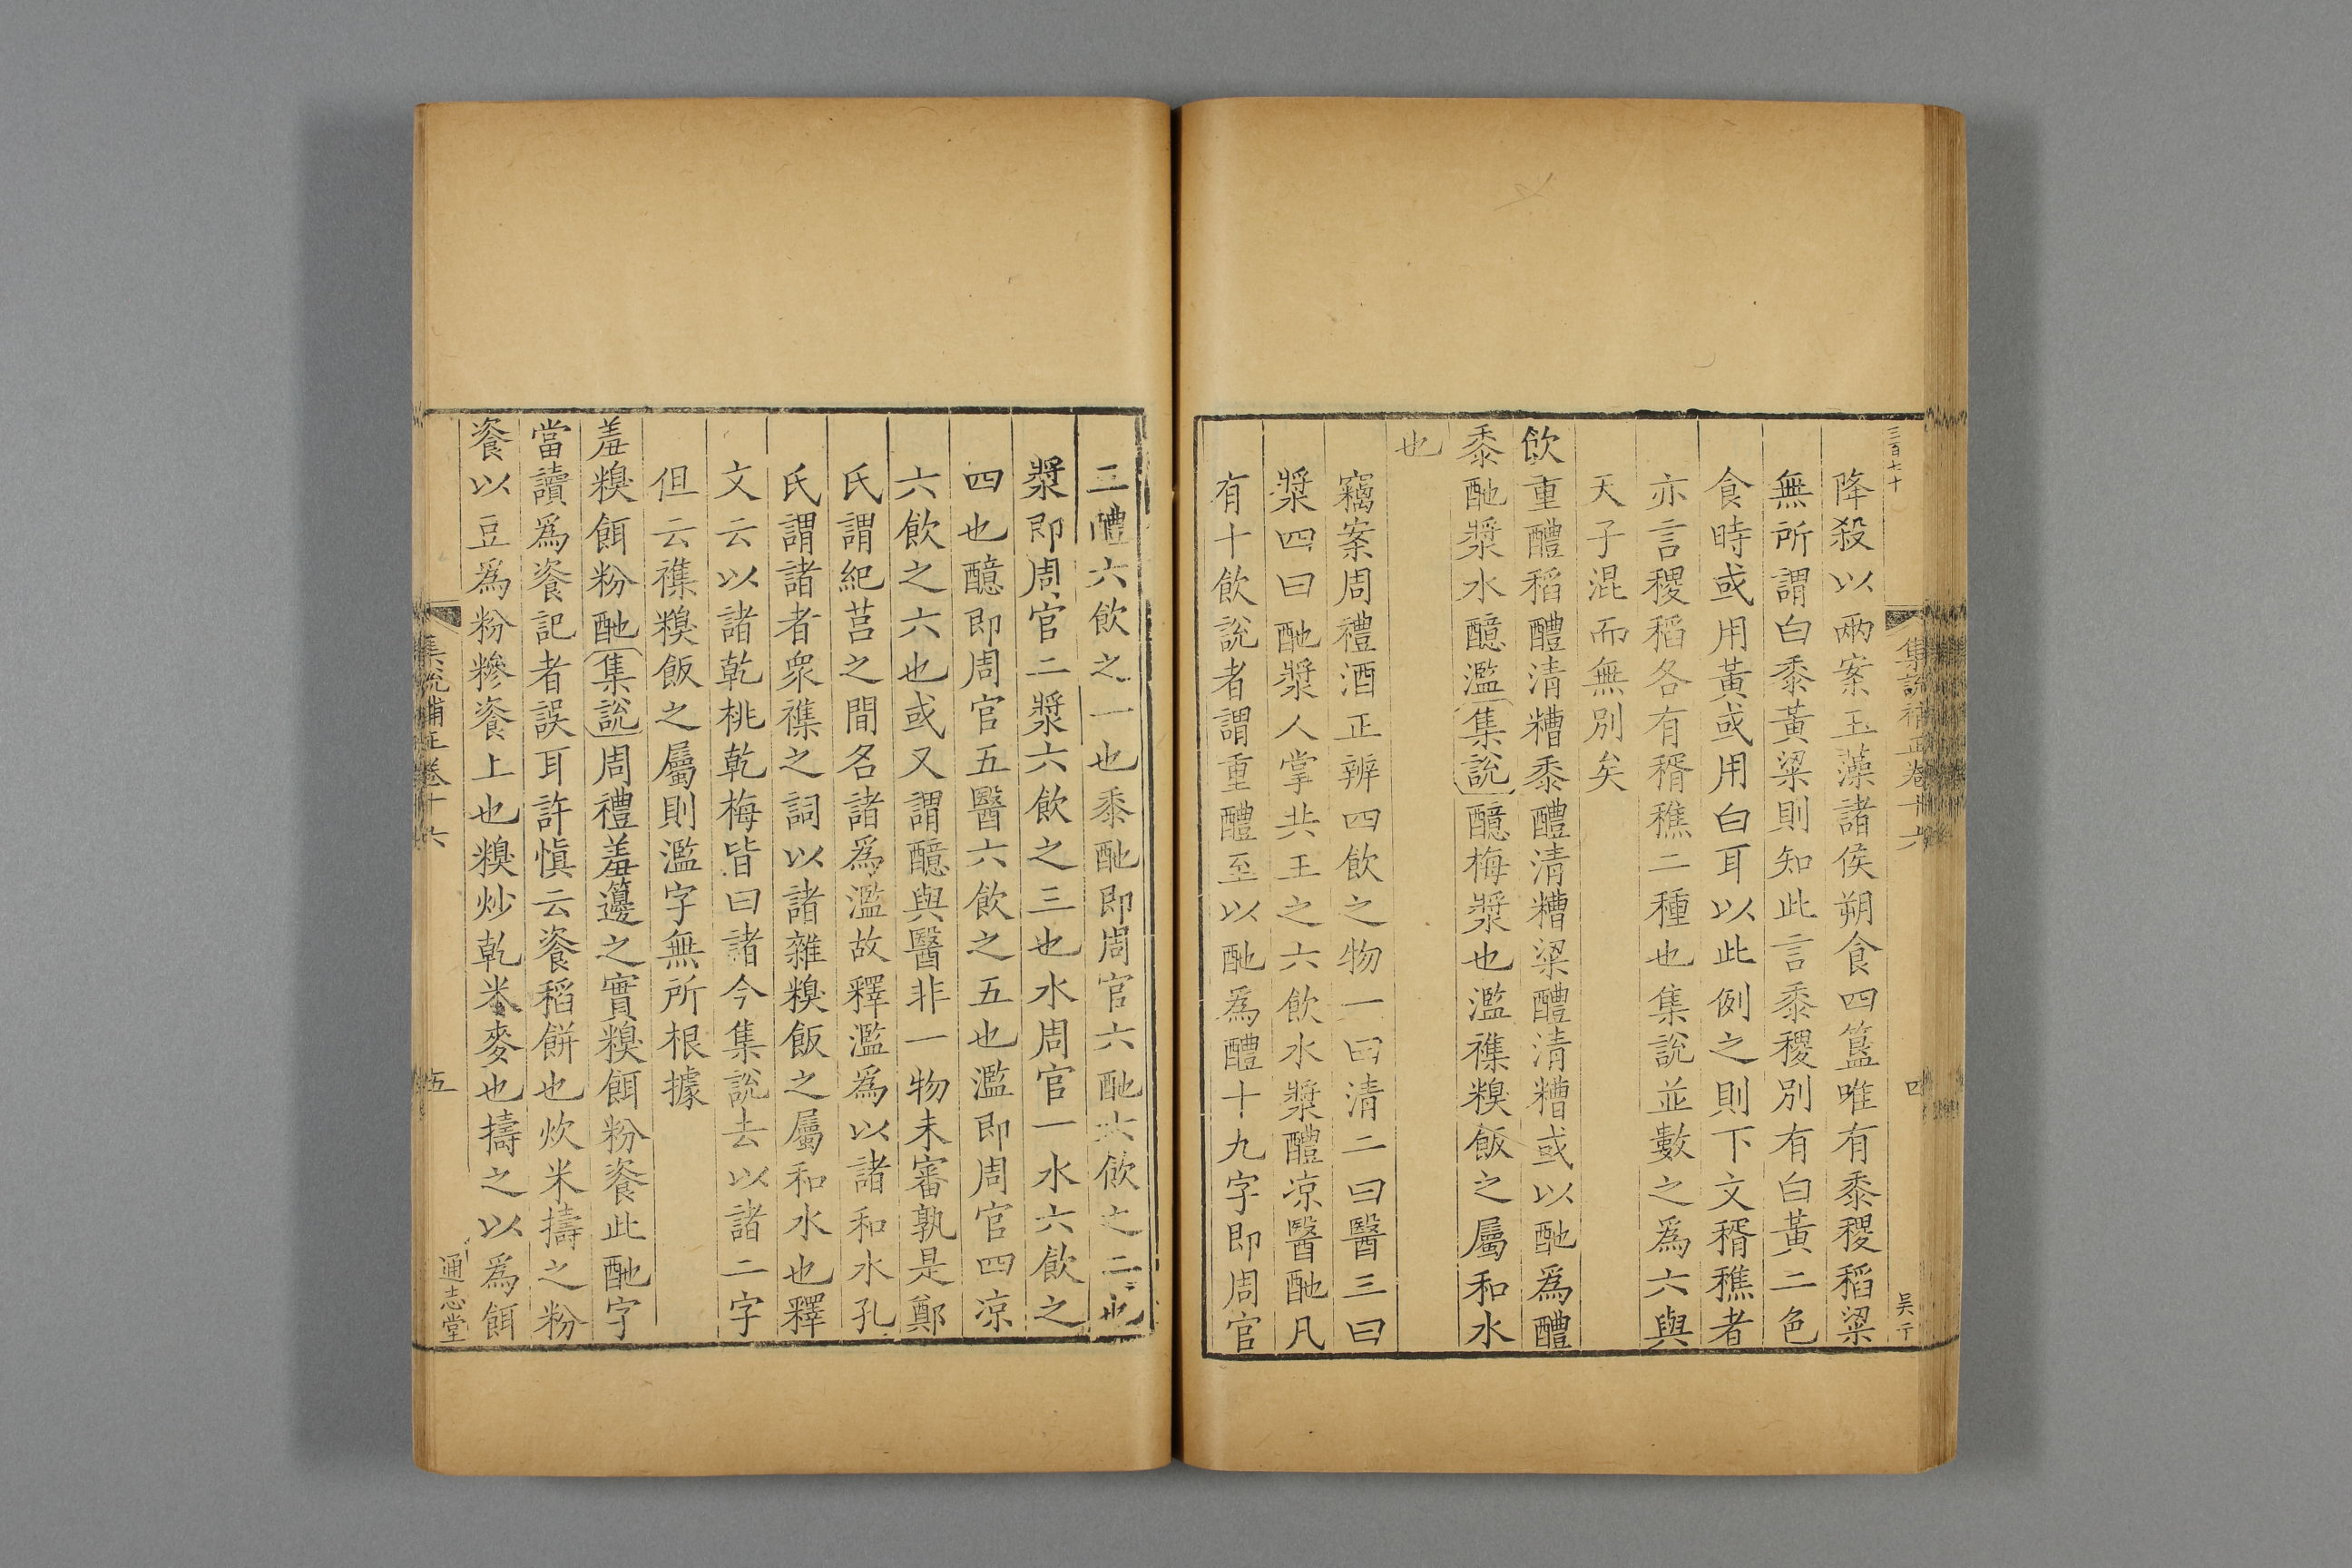 三百七十
集說補正卷十六
四
吴亍
降殺以兩案玉藻諸侯朔食四簋唯有黍稷稻粱
無所謂白黍黃粱則知此言黍稷別有白黃二色
食時或用黃或用白耳以此例之則下文稰穛者
亦言稷稻各有稰穛二種也集說並數之為六與
天子混而無別矣
飲重醴稻醴清糟黍醴清糟粱醴清糟或以酏為醴
黍酏漿水醷濫集說醷梅漿也濫襍糗飯之屬和水
也
竊案周禮酒正辨四飲之物一曰清二曰醫三曰
漿四曰酏漿人掌共王之六飲水漿醴涼醫酏凡
有十飲說者謂重醴至以酏為醴十九字即周官
三醴六飲之一也黍酏即周官六酏六飲之二也
漿即周官二漿六飲之三也水周官一水六飲之
四也醷即周官五醫六飲之五也濫即周官四涼
六飲之六也或又謂醷與醫非一物未審孰是鄭
氏謂紀莒之間名諸為濫故釋濫為以諸和水孔
氏謂諸者眾襍之詞以諸雜糗飯之屬和水也釋
文云以諸乾桃乾梅皆曰諸今集說去以諸二字
但云襍糗飯之屬則濫字無所根據
羞糗餌粉酏集說周禮羞籩之實糗餌粉餈此酏字
當讀為餈記者誤耳許慎云餈稻餅也炊米擣之粉
餈以豆為粉糝餈上也糗炒乾米麥也擣之以為餌
集說補正卷十六
五
通志堂